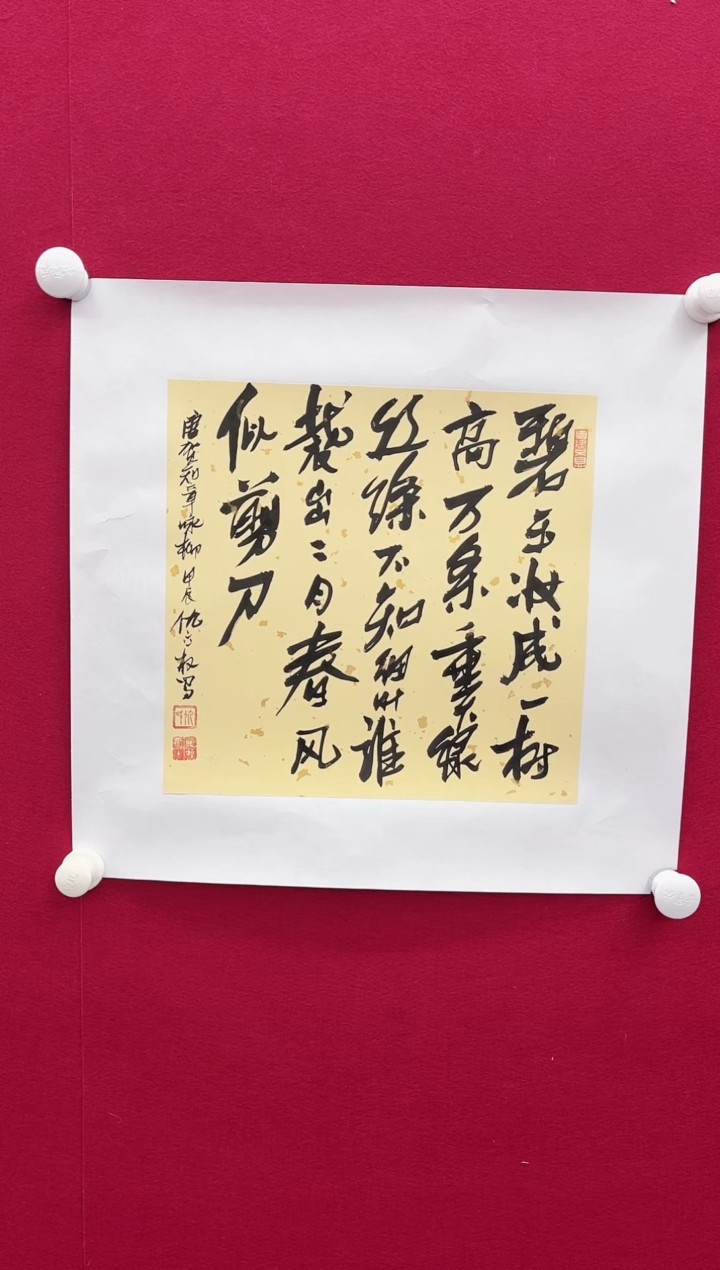 碧玉妆成一树
高万条垂下绿
丝绦不知细叶谁
裁出二月春风
似剪刀
唐贺知章咏柳 甲辰 仇权写